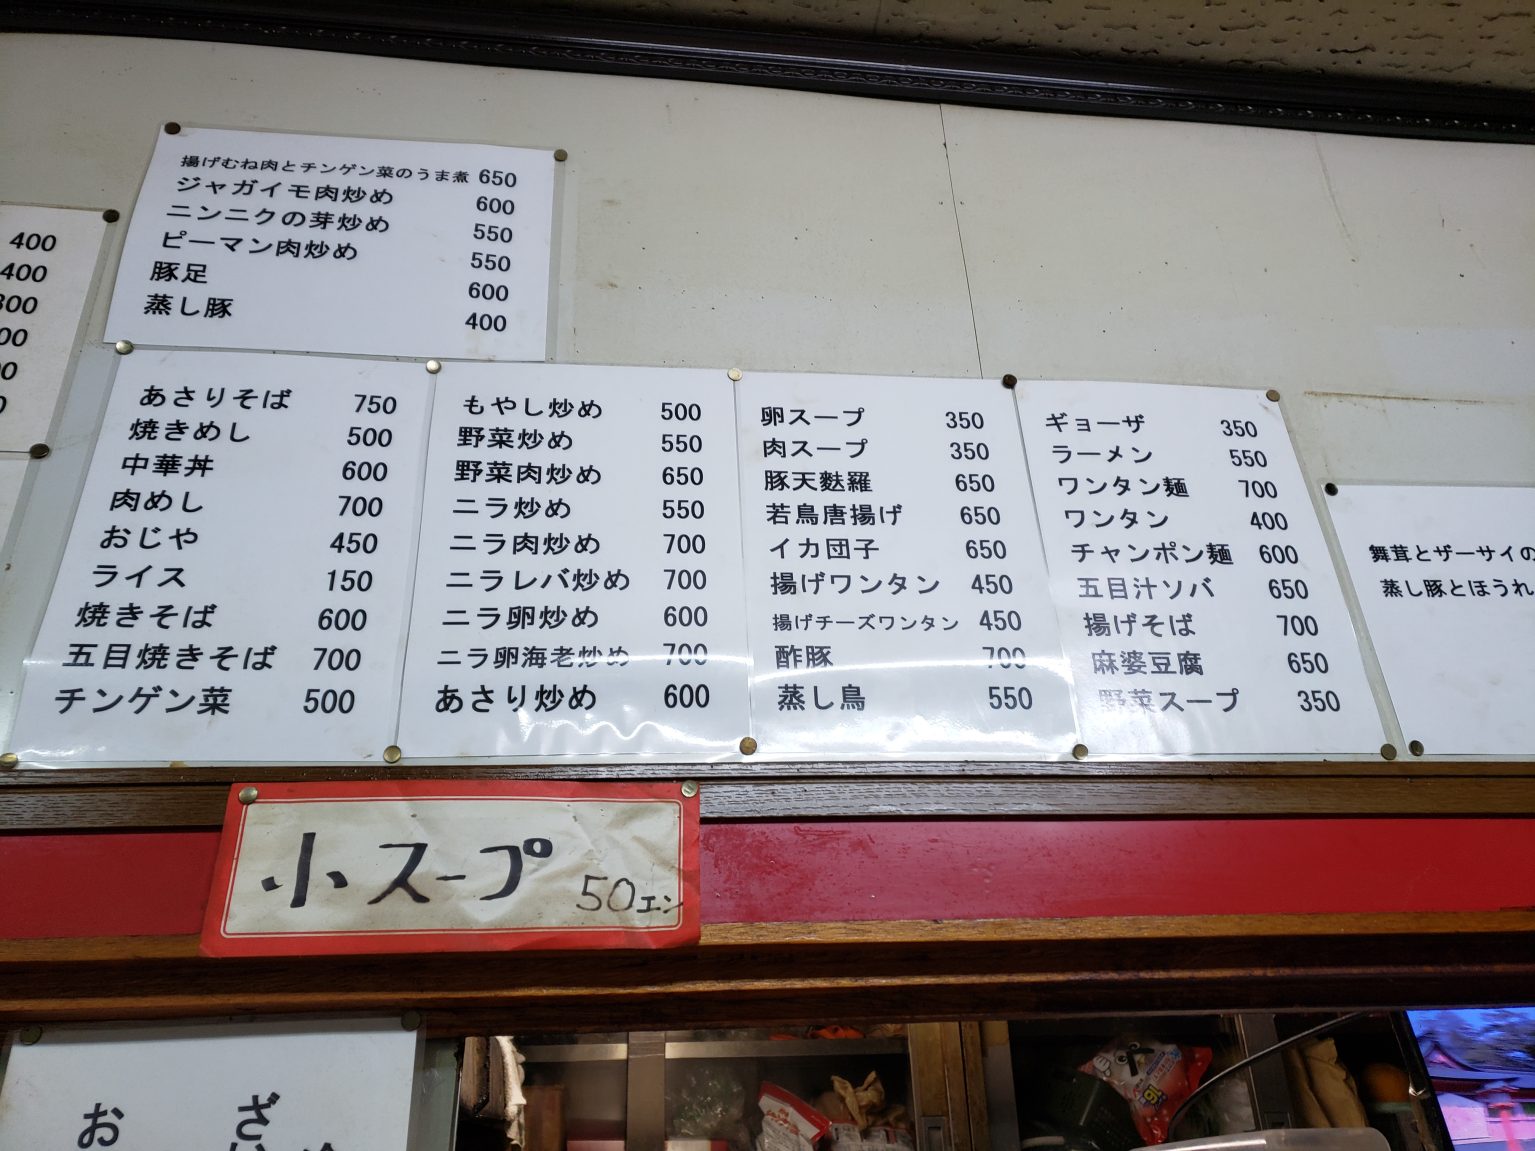 揚げむね肉とチンゲン菜のうま煮 650
ジャガイモ肉炒め 600
ニンニクの芽炒め 550
ピーマン肉炒め 550
豚足 600
蒸し豚 400
400
400
あさりそば 750
焼きめし 500
中華丼 600
肉めし 700
おじや 450
ライス 150
焼きそば 600
五目焼きそば 700
チンゲン菜 500
もやし炒め 500
野菜炒め 550
野菜肉炒め 650
ニラ炒め 550
ニラ肉炒め 700
ニラレバ炒め 700
ニラ卵炒め 600
ニラ卵海老炒め 700
あさり炒め 600
卵スープ 350
肉スープ 350
豚天麩羅 650
若鳥唐揚げ 650
イカ団子 650
揚げワンタン 450
揚げチーズワンタン 450
酢豚 700
蒸し鳥 550
ギョーザ 350
ラーメン 550
ワンタン麺 700
ワンタン 400
チャンポン麺 600
五目汁ソバ 650
揚げそば 700
麻婆豆腐 650
野菜スープ 350
舞茸とザーサイの
蒸し豚とほうれ
小スープ 50エン
お
ざ